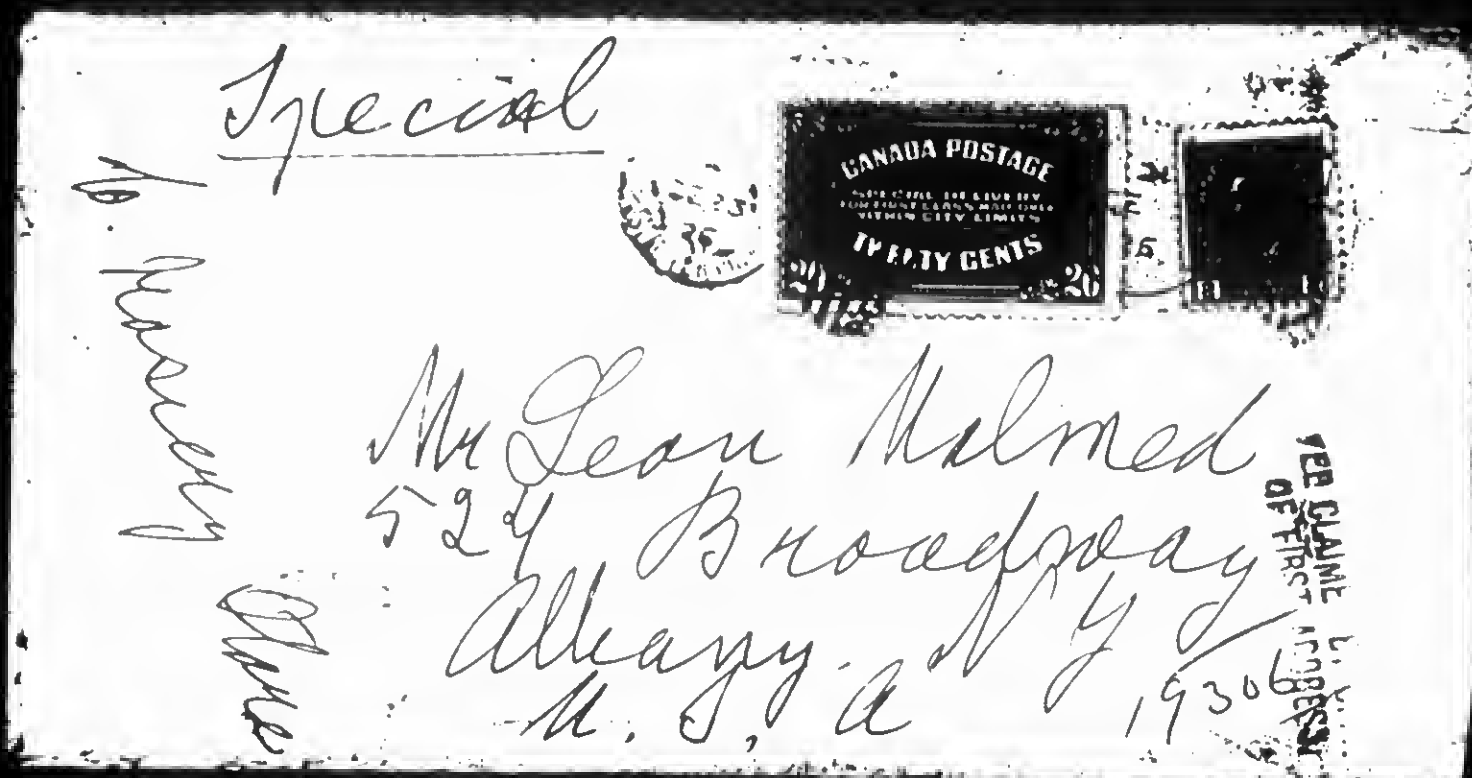 Special
CANADA POSTAGE
SPECIAL DELIVERY
FOR FIRST CLASS MAIL ONLY
WITHIN CITY LIMITS
TWENTY CENTS
20 20
36
Mr Leon Malmed
524 Broadway
Albany. N Y
U. S. A
1936
OF FIRST ADDRESS